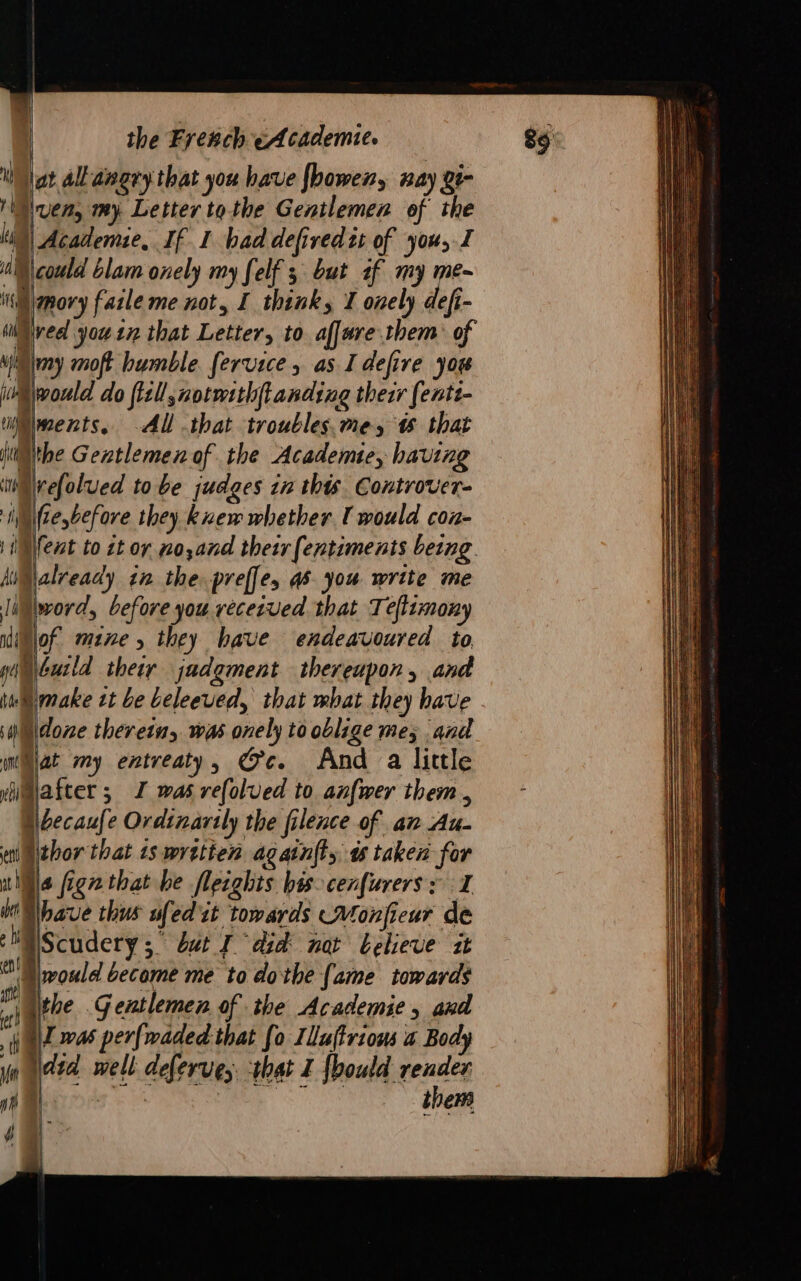 the French Academie. 89
at all angry that you have ſhowen, nay gi-
ven, my Letter to the Gentlemen of the
Academie. If I had deſired it of you, I
could blam onely my ſelf; but if my me-
mory faile me not, I think, I onely deſi-
red you in that Letter, to aſſure them of
my moſt humble ſervice, as I deſire you
would do ſtill, notwithſtanding their ſenti-
ments. All that troubles me, is that
the Gentlemen of the Academie, having
reſolved to be judges in this Controver-
ſie, before they knew whether I would con-
ſent to it or no, and their ſentiments being
already in the preſſe, as you write me
word, before you received that Teſtimony
of mine, they have endeavoured to
build their judgment thereupon, and
make it be beleeved, that what they have
done therein, was onely to oblige me, and
at my entreaty, &c. And a little
after; I was reſolved to anſwer them,
becauſe Ordinarily the ſilence of an Au-
thor that is written againſt, is taken for
a ſign that he ſleights his cenſurers: I
have thus uſed it towards Monſieur de
Scudery; but I did not believe it
would become me to do the ſame towards
the Gentlemen of the Academie, and
I was perſwaded that ſo Illuſtrious a Body
did well deſerve, that I ſhould render
them